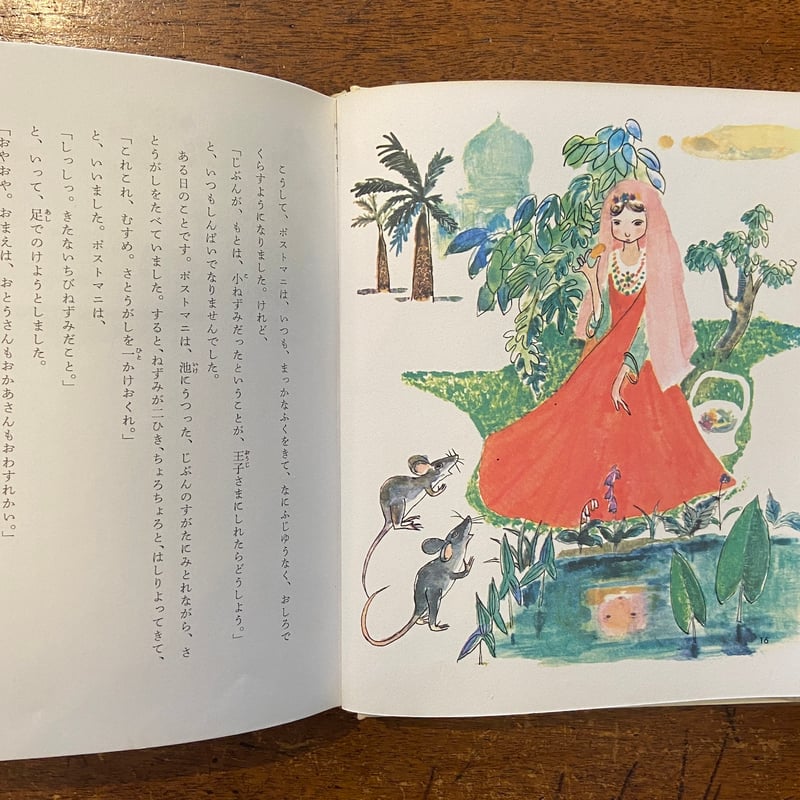 こうして、ポストマニは、いつも、まっかなふくをきて、なにふじゆうなく、おしろで
くらすようになりました。けれど、
「じぶんが、もとは、小ねずみだったということが、王子さまにしれたらどうしよう。」
と、いつもしんぱいでなりませんでした。
ある日のことです。ポストマニは、池にうつった、じぶんのすがたにみとれながら、さ
とうがしをたべていました。すると、ねずみが二ひき、ちょろちょろと、はしりよってきて、
「これこれ、むすめ。さとうがしを一かけおくれ。」
と、いいました。ポストマニは、
「しっしっ。きたないちびねずみだこと。」
と、いって、足でのけようとしました。
「おやおや。おまえは、おとうさんもおかあさんもおわすれかい。」
16